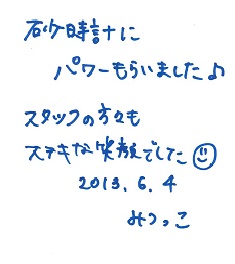 砂時計に
パワーもらいました♪
スタッフの方々も
ステキな笑顔でした☺
2013.6.4
みつっこ